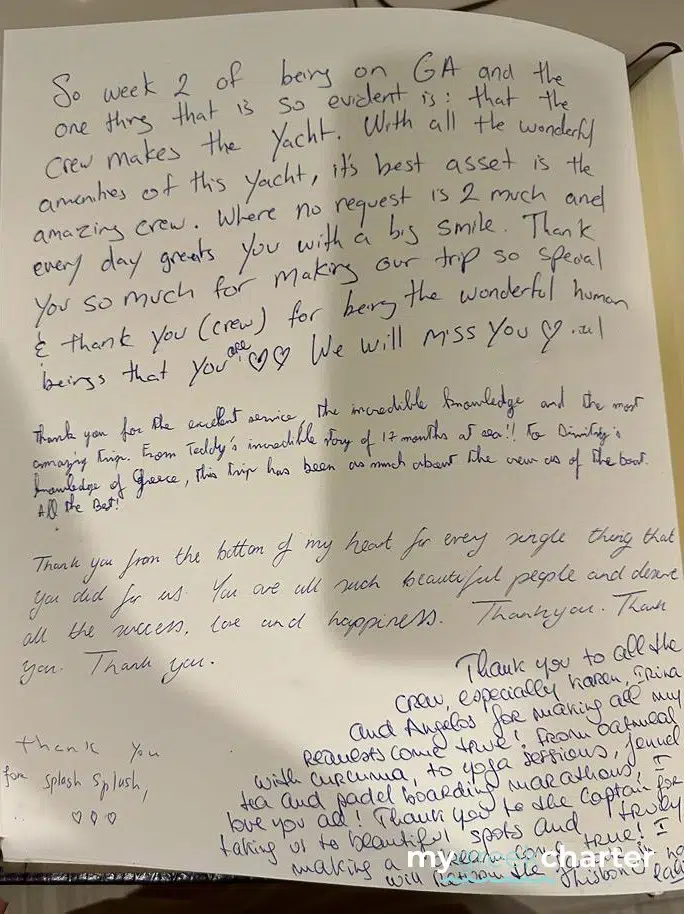 So week 2 of being on GA and the
one thing that is so evident is: that the
Crew makes the Yacht. With all the wonderful
amenities of this Yacht, it's best asset is the
amazing crew. Where no request is 2 much and
every day greats you with a big smile. Thank
You so much for making our trip so special
& thank you (crew) for being the wonderful human
beings that you are ♡♡ We will miss you ♡
Thank you for the excellent service, the incredible knowledge and the most
amazing trip. From Teddy's incredible story of 17 months at sea!! To Dimitry's
knowledge of Greece, this trip has been as much about the crew as of the boat.
All the Best!
Thank you from the bottom of my heart for every single thing that
you did for us. You are all such beautiful people and deserve
all the success, love and happiness. Thank you. Thank
you. Thank you.
Thank you to all the
crew, especially Karen, Irina
and Angelos for making all my
requests come true! From oatmeal
with curcuma, to yoga sessions, fennel
tea and padel boarding marathons! I
love you all! Thank you to the Captain for
taking us to beautiful spots and truly
making a dream come true! I
will the
thank you
for splash splush,
♡ ♡ ♡
my greek charter